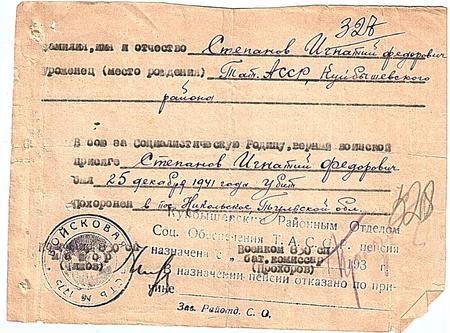 327
фамилия, имя и отчество Степанов Игнатий Федорович
уроженец (место рождения) Тат. АССР, Куйбышевского
района
В бою за Социалистическую Родину, верный воинской
присяге Степанов Игнатий Федорович
был 25 декабря 1941 года Убит
Похоронен в пос. Никольское Тульской обл.
Куйбышевским Районным Отделом
Соц. Обеспечения Т.А.С.С.Р. пенсия
назначена с 193 г.
военком
бат. комиссар
(Прохоров)
в назначении пенсии отказано по при-
чине
Зав. Районд. С. О.
ВОЙСКОВАЯ